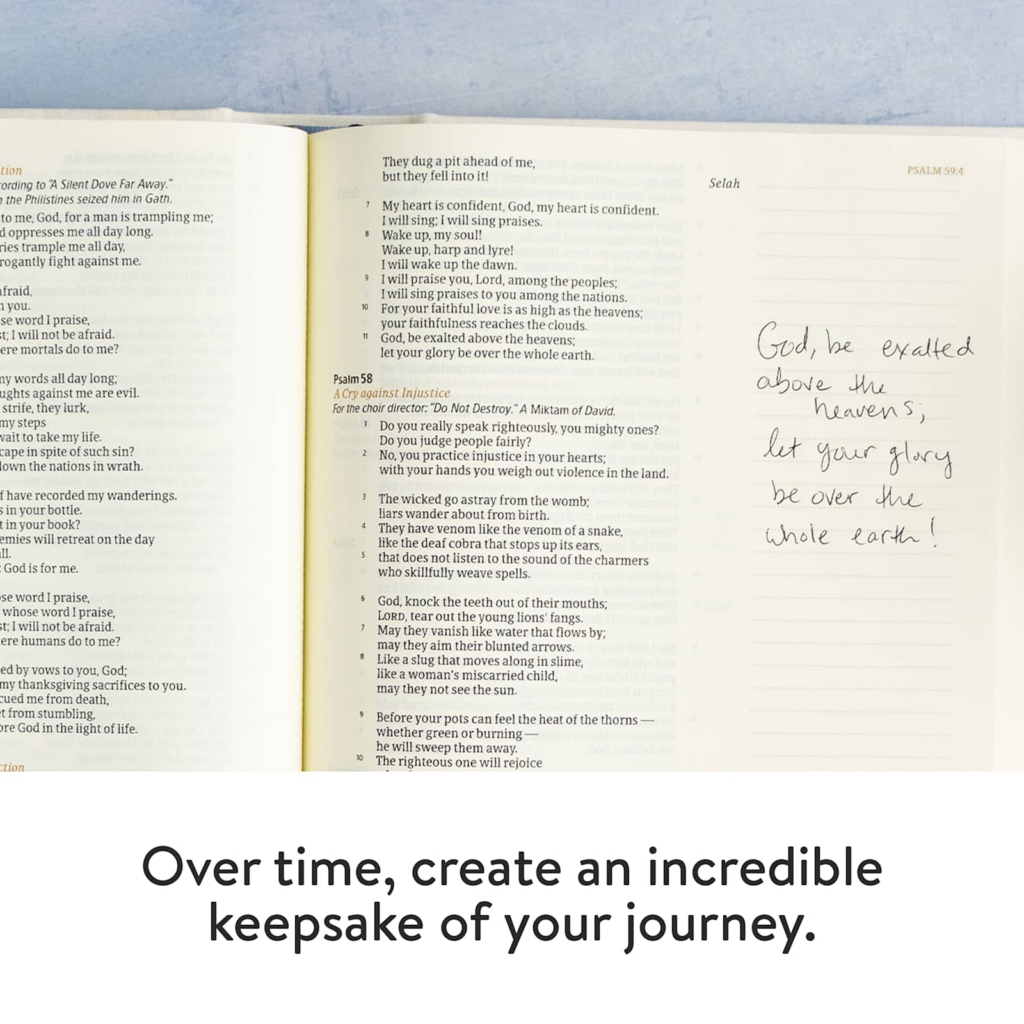 tion
ording to "A Silent Dove Far Away."
the Philistines seized him in Gath.
to me, God, for a man is trampling me;
oppresses me all day long.
ries trample me all day,
rogantly fight against me.
fraid,
you.
se word I praise,
t; I will not be afraid.
ere mortals do to me?
my words all day long;
ughts against me are evil.
strife, they lurk,
my steps
wait to take my life.
cape in spite of such sin?
down the nations in wrath.
f have recorded my wanderings.
s in your bottle.
t in your book?
emies will retreat on the day
ll.
God is for me.
se word I praise,
whose word I praise,
t; I will not be afraid.
ere humans do to me?
ed by vows to you, God;
my thanksgiving sacrifices to you.
cued me from death,
t from stumbling,
ore God in the light of life.
ction
They dug a pit ahead of me,
but they fell into it!
7 My heart is confident, God, my heart is confident.
I will sing; I will sing praises.
8 Wake up, my soul!
Wake up, harp and lyre!
I will wake up the dawn.
9 I will praise you, Lord, among the peoples;
I will sing praises to you among the nations.
10 For your faithful love is as high as the heavens;
your faithfulness reaches the clouds.
11 God, be exalted above the heavens;
let your glory be over the whole earth.
Psalm 58
A Cry against Injustice
For the choir director: "Do Not Destroy." A Miktam of David.
1 Do you really speak righteously, you mighty ones?
Do you judge people fairly?
2 No, you practice injustice in your hearts;
with your hands you weigh out violence in the land.
3 The wicked go astray from the womb;
liars wander about from birth.
4 They have venom like the venom of a snake,
like the deaf cobra that stops up its ears,
5 that does not listen to the sound of the charmers
who skillfully weave spells.
6 God, knock the teeth out of their mouths;
LORD, tear out the young lions' fangs.
7 May they vanish like water that flows by;
may they aim their blunted arrows.
8 Like a slug that moves along in slime,
like a woman's miscarried child,
may they not see the sun.
9 Before your pots can feel the heat of the thorns —
whether green or burning —
he will sweep them away.
10 The righteous one will rejoice
Selah
PSALM 59:4
God, be exalted
above the
heavens;
let your glory
be over the
whole earth!
Over time, create an incredible
keepsake of your journey.